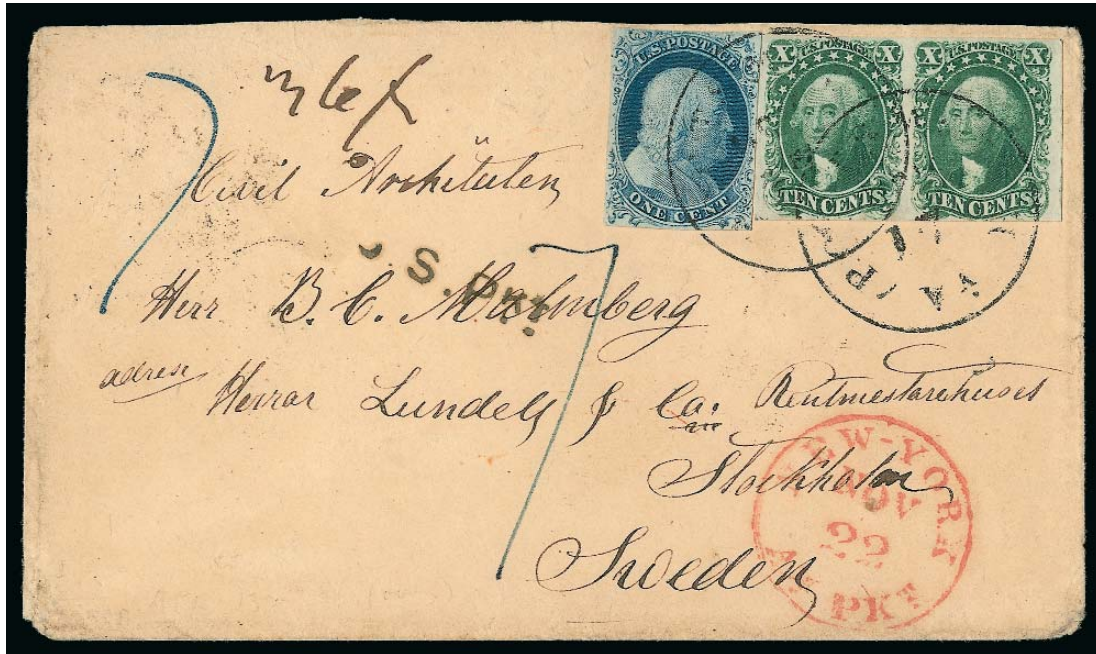 U.S. POSTAGE
ONE CENT
X U.S. POSTAGE X
TEN CENTS
X U.S. POSTAGE X
TEN CENTS
17
VA
7
Civil Architecten
S. PKt.
7
Herr B. C. Malmberg
adress
Herrar Lundell & Co. Rentmestarehuset
Stockholm
Sweden
NEW-YORK
NOV
22
PKT